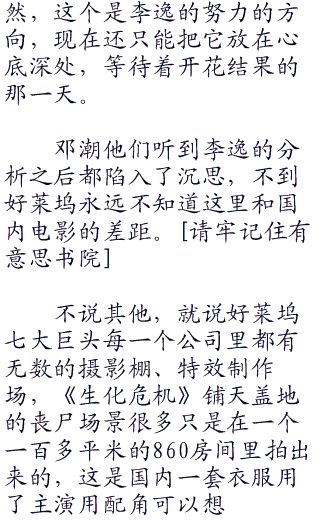 然，这个是李逸的努力的方
向，现在还只能把它放在心
底深处，等待着开花结果的
那一天。
邓潮他们听到李逸的分
析之后都陷入了沉思，不到
好莱坞永远不知道这里和国
内电影的差距。[请牢记住有
意思书院]
不说其他，就说好莱坞
七大巨头每一个公司里都有
无数的摄影棚、特效制作
场，《生化危机》铺天盖地
的丧尸场景很多只是在一个
一百多平米的860房间里拍出
来的，这是国内一套衣服用
了主演用配角可以想